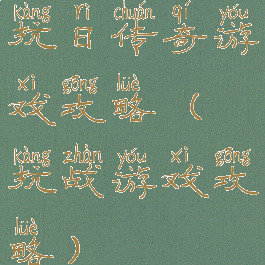 kàng rì chuán qí yóu
抗日传奇游
xì gōng lüè
戏攻略（
kàng zhàn yóu xì gōng
抗战游戏攻
lüè
略）